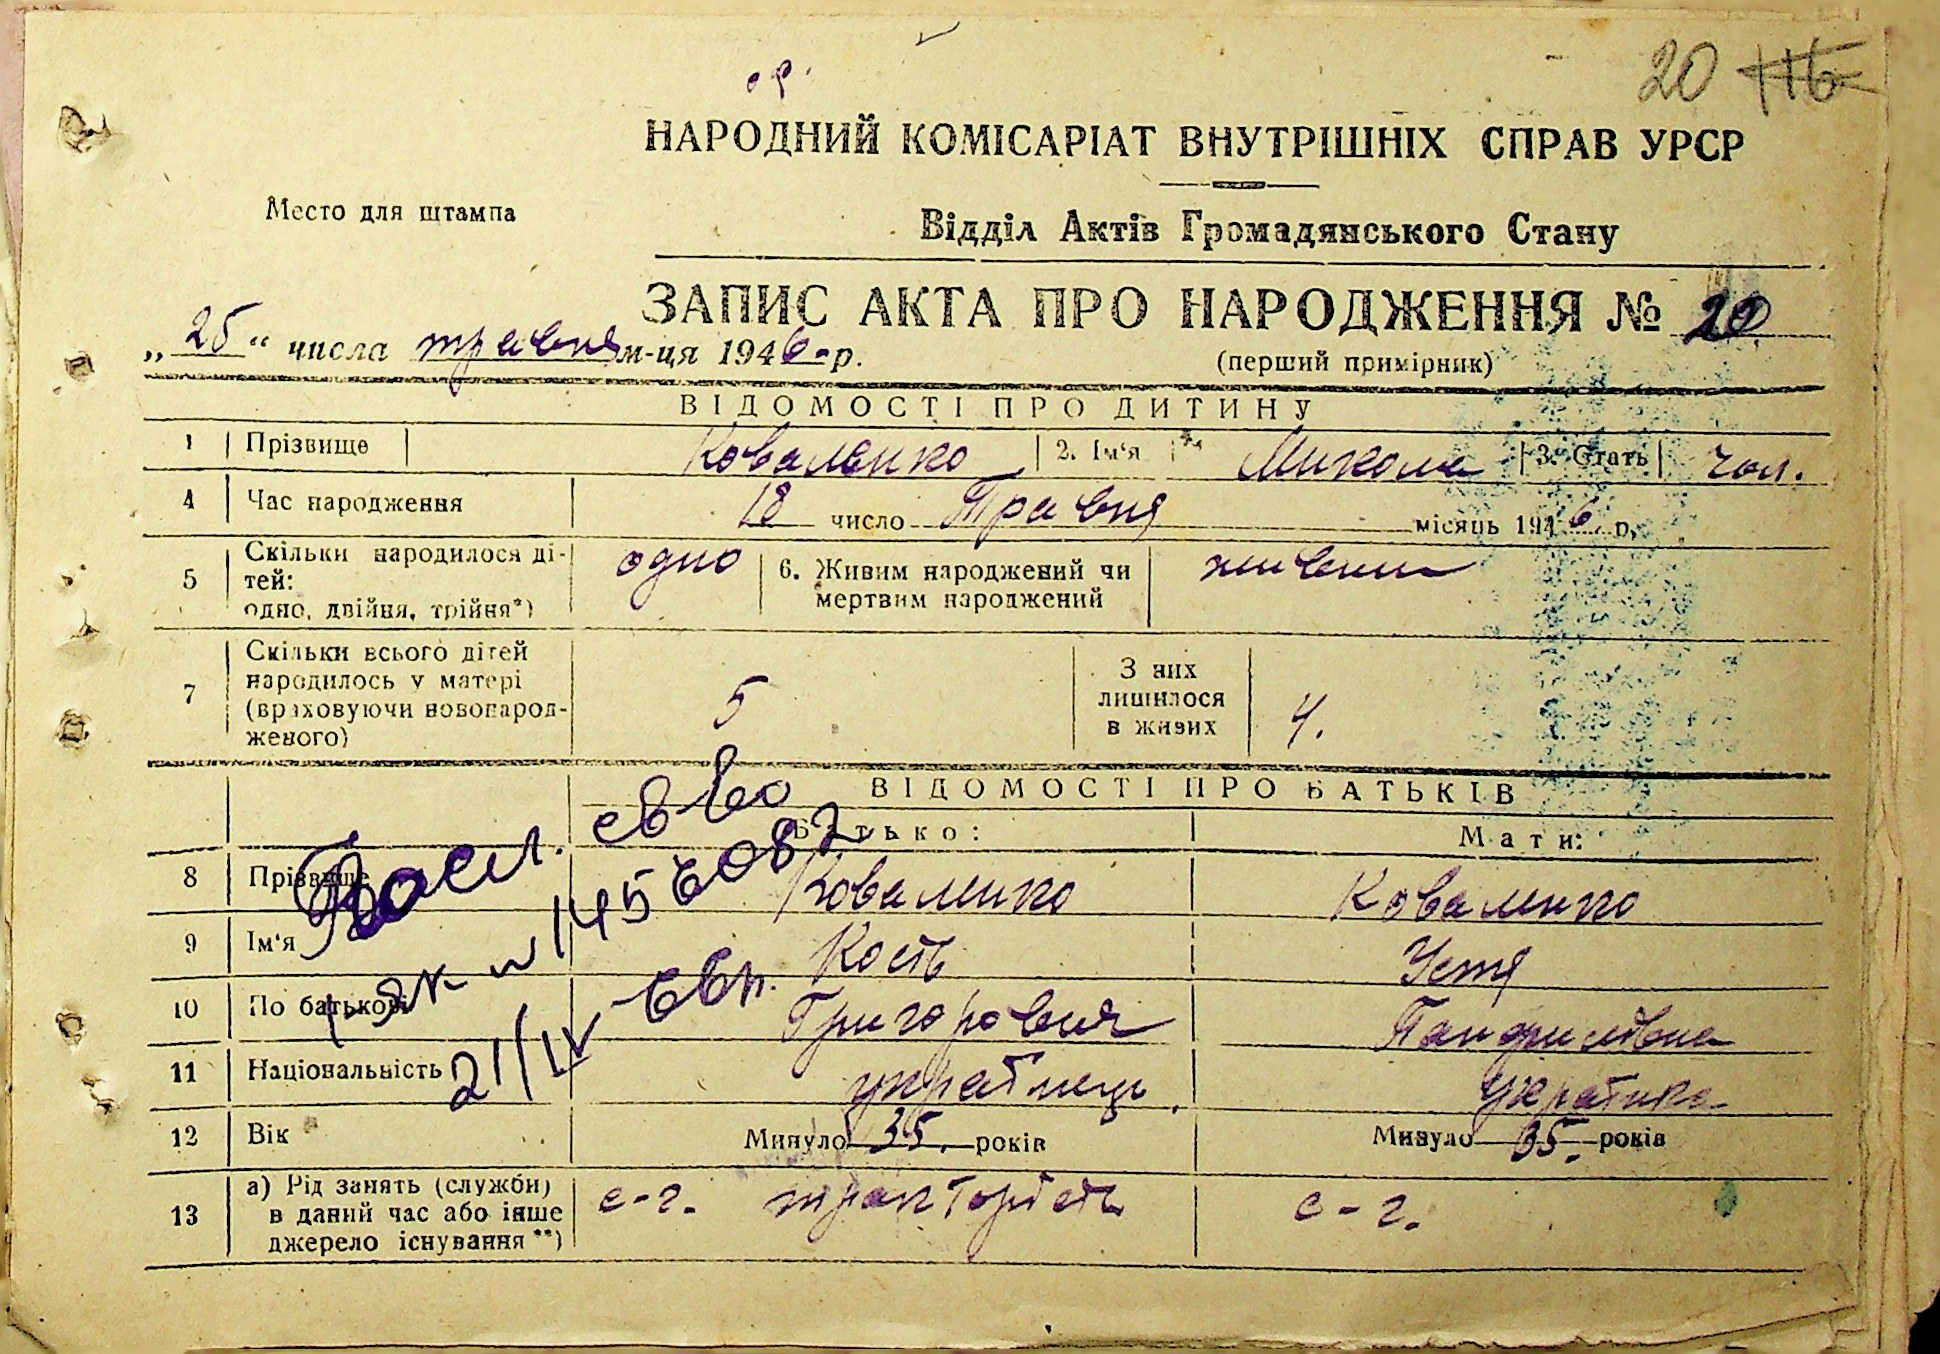 20 116
НАРОДНИЙ КОМІСАРІАТ ВНУТРІШНІХ СПРАВ УРСР
Место для штампа
Відділ Актів Громадянського Стану
ЗАПИС АКТА ПРО НАРОДЖЕННЯ № 20
„25“ числа травня м-ця 1946 р.
(перший примірник)
ВІДОМОСТІ ПРО ДИТИНУ
1 Прізвище Коваленко 2. Ім‘я Микола 3. Стать чол.
4 Час народження 18 число Травня місяць 1946 р.
5 Скільки народилося ді-
тей:
одно, двійня, трійня*) одно
6. Живим народжений чи
мертвим народжений живим
7 Скільки всього дітей
народилось у матері
(враховуючи новонарод-
женого) 5
З них
лишилося
в живих 4.
ВІДОМОСТІ ПРО БАТЬКІВ
Батько: Мати:
8 Прізвище Коваленко Коваленко
9 Ім‘я Кость Устя
10 По батькові Григорович Панфилівна
11 Національність українець українка
12 Вік Минуло 35 років Минуло 35 років
13 а) Рід занять (служби)
в даний час або інше
джерело існування**) с-г. тракторіст с-г.
1456082
21/IV